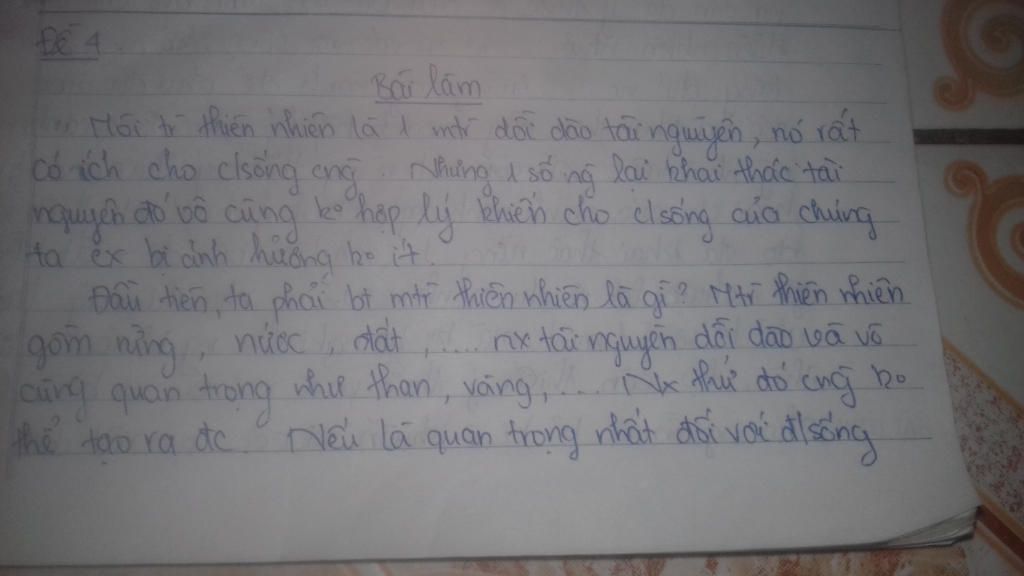 Đề 4.
Bài làm
Môi tr thiên nhiên là 1 mtr dồi dào tài nguyên, nó rất
có ích cho c/sống cng̃. Nhưng 1 số ng lại khai thác tài
nguyên đó vô cùng ko hợp lý khiến cho c/sống của chúng
ta bị ảnh hưởng ko ít.
Đầu tiên, ta phải bt mtr thiên nhiên là gì? Mtr thiên nhiên
gồm rừng, nước, đất,.... nx tài nguyên dồi dào và vô
cùng quan trọng như than, vàng,... Nx thứ đó cng̃ ko
thể tạo ra đc. Nếu là quan trọng nhất đối với đ/sống